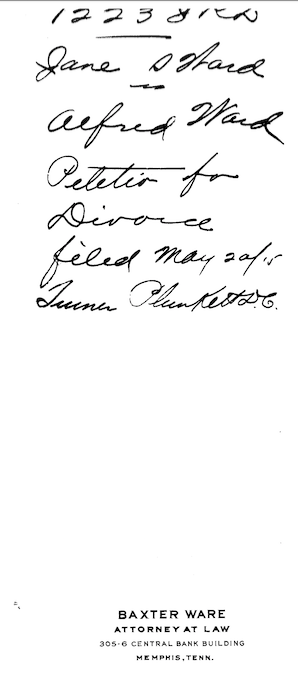 12238 R.D
Jane D Ward
vs
Alfred Ward
Petetio for
Divorce
filed May 20/15
Turner Plunkett D.C.
BAXTER WARE
ATTORNEY AT LAW
305-6 CENTRAL BANK BUILDING
MEMPHIS, TENN.